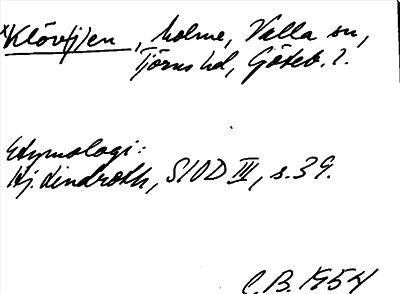 *Klöv(j)en, holme, Valla sn,
Tjörns hd, Göteb. l.
Etymologi:
Hj. Lindroth, SIOD III, s. 39.
C.B. 1954